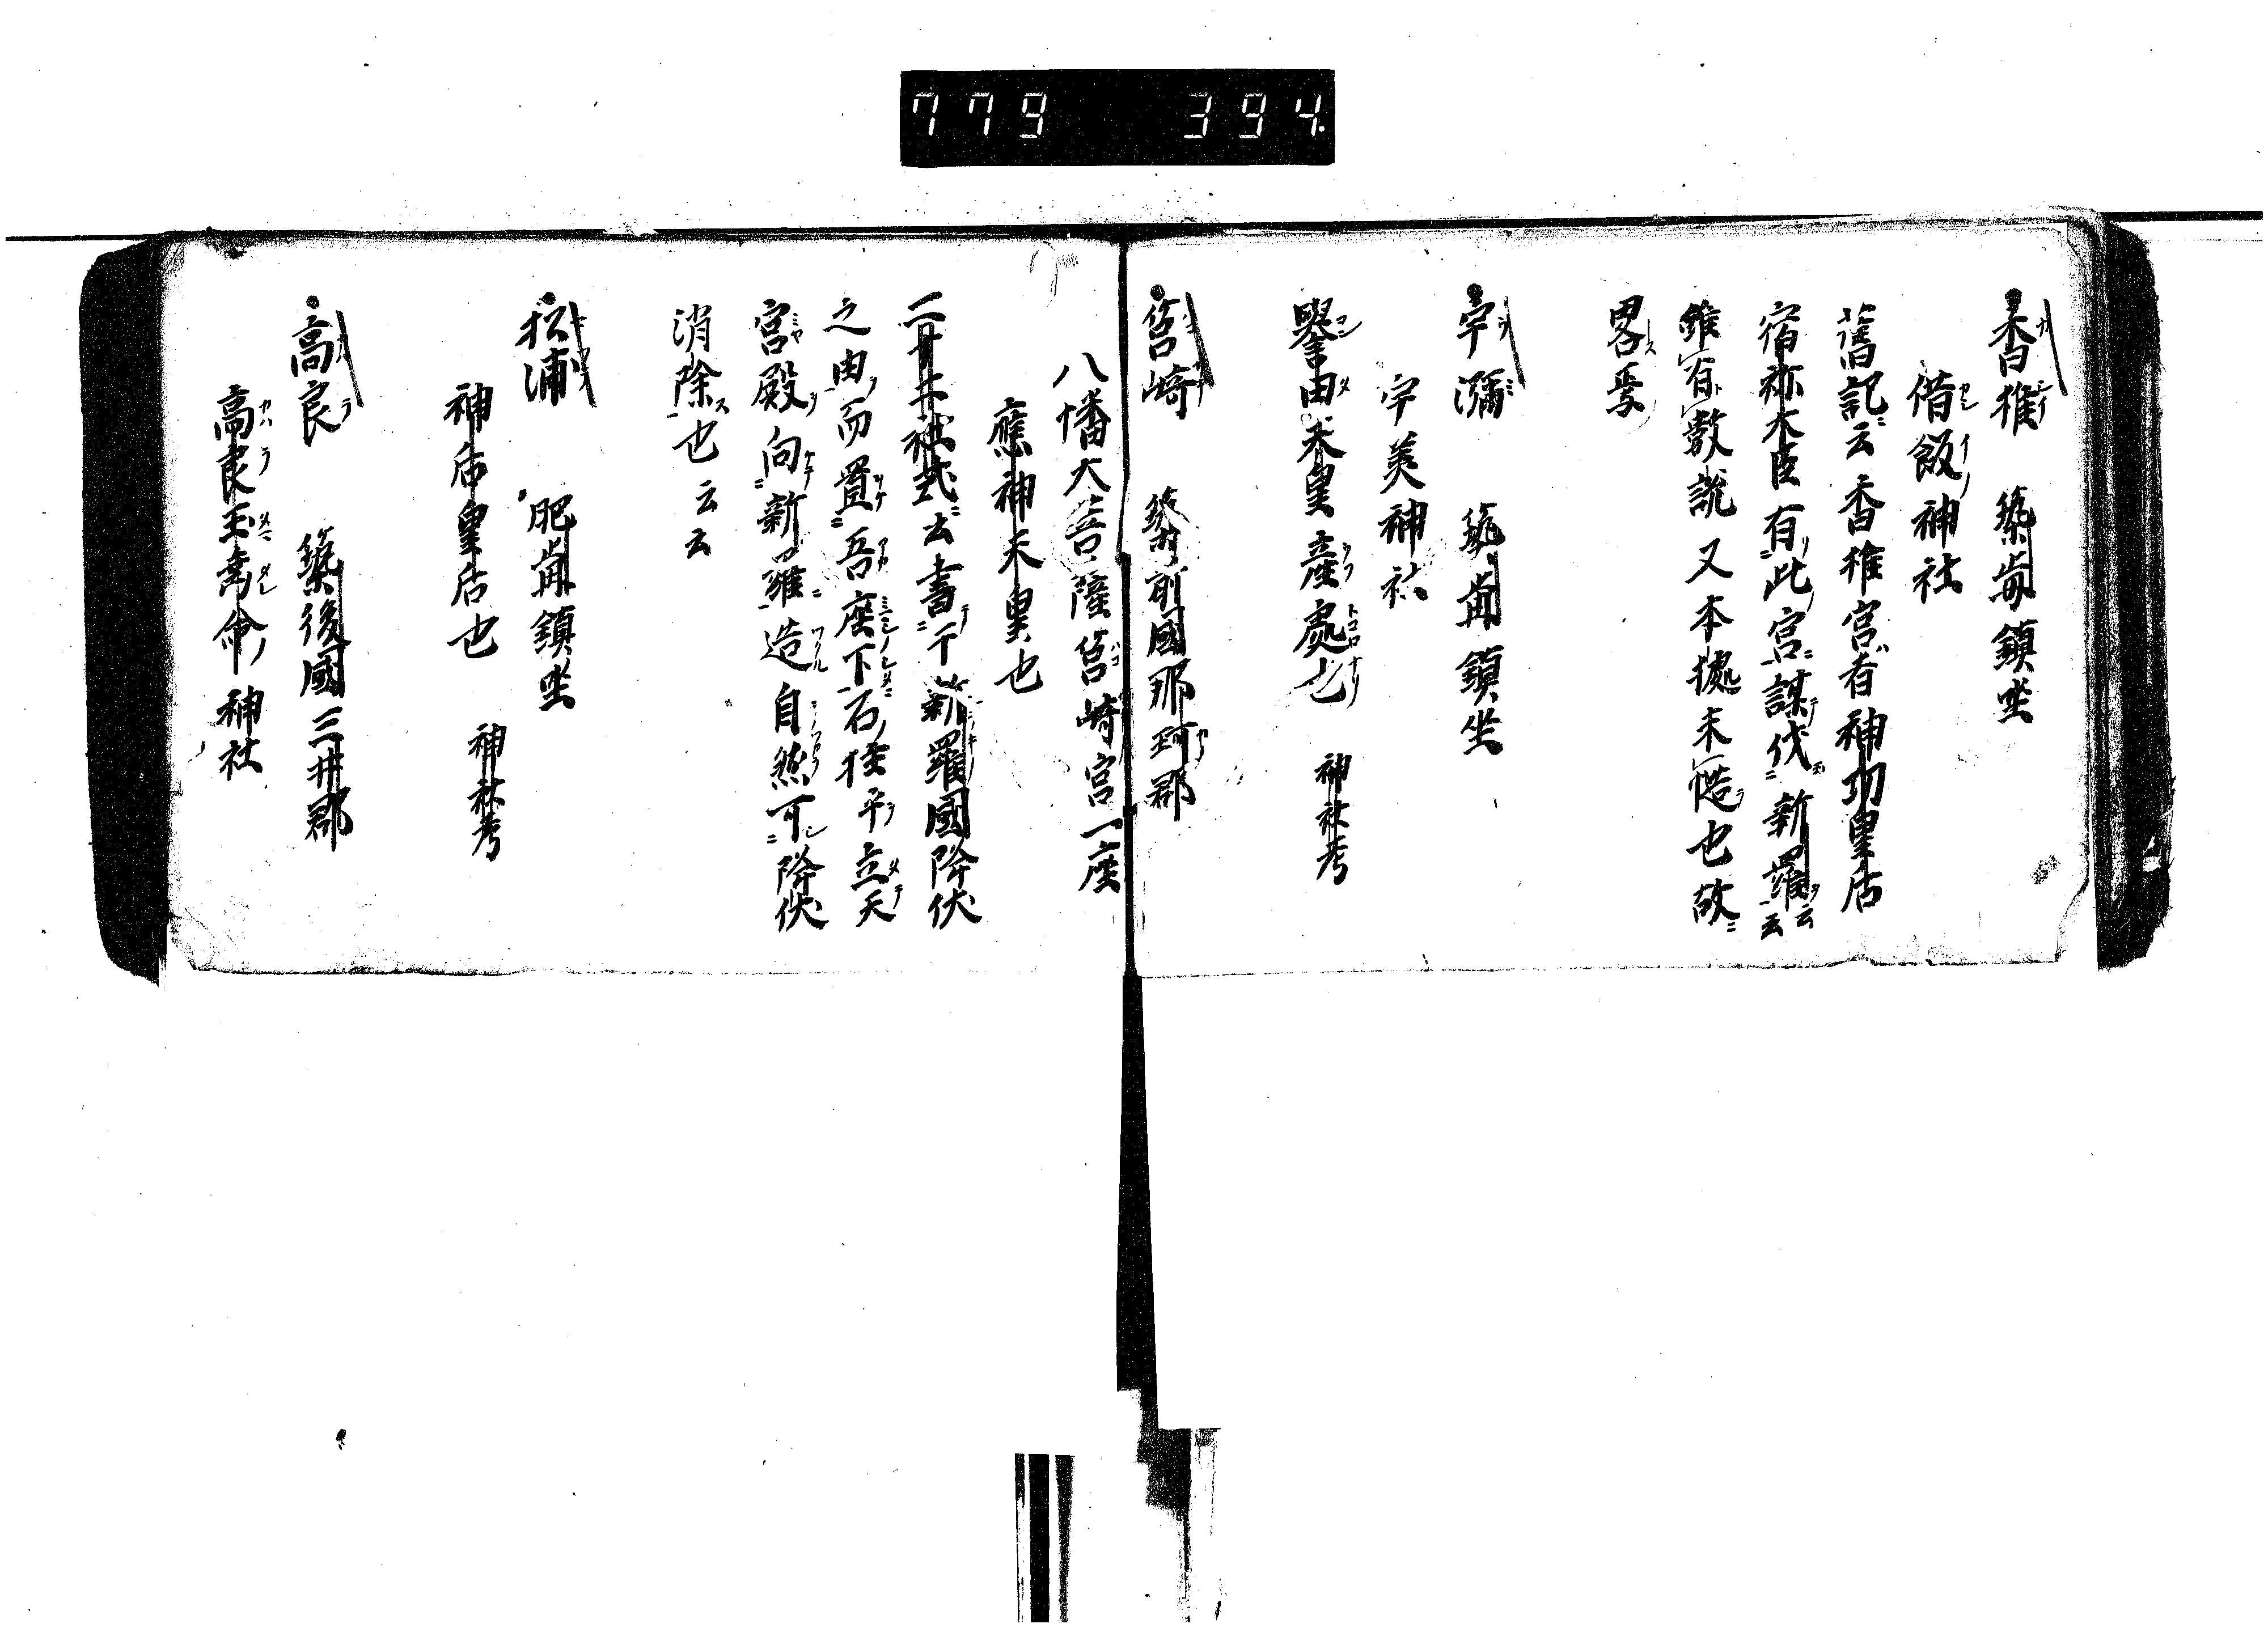 779 394.
香椎 築前鎮坐
借飯神社
舊記云香椎宮者神功皇后
宿祢大臣有此宮謀伐新羅云云
雖有數說又本據未慥也故
畧焉
宇瀰 筑前鎮坐
宇美神社
譽田天皇産處也 神社考
筥崎 築前國那珂郡
八幡大菩薩筥崎宮一座
應神天皇也
二十二社式云書于新羅國降伏
之由而置吾座下石柱平立天
宮殿向新羅造自然可降伏
消除也云云
松浦 肥前鎮坐
神后皇后也 神社考
高良 築後國三井郡
高良玉垂命神社